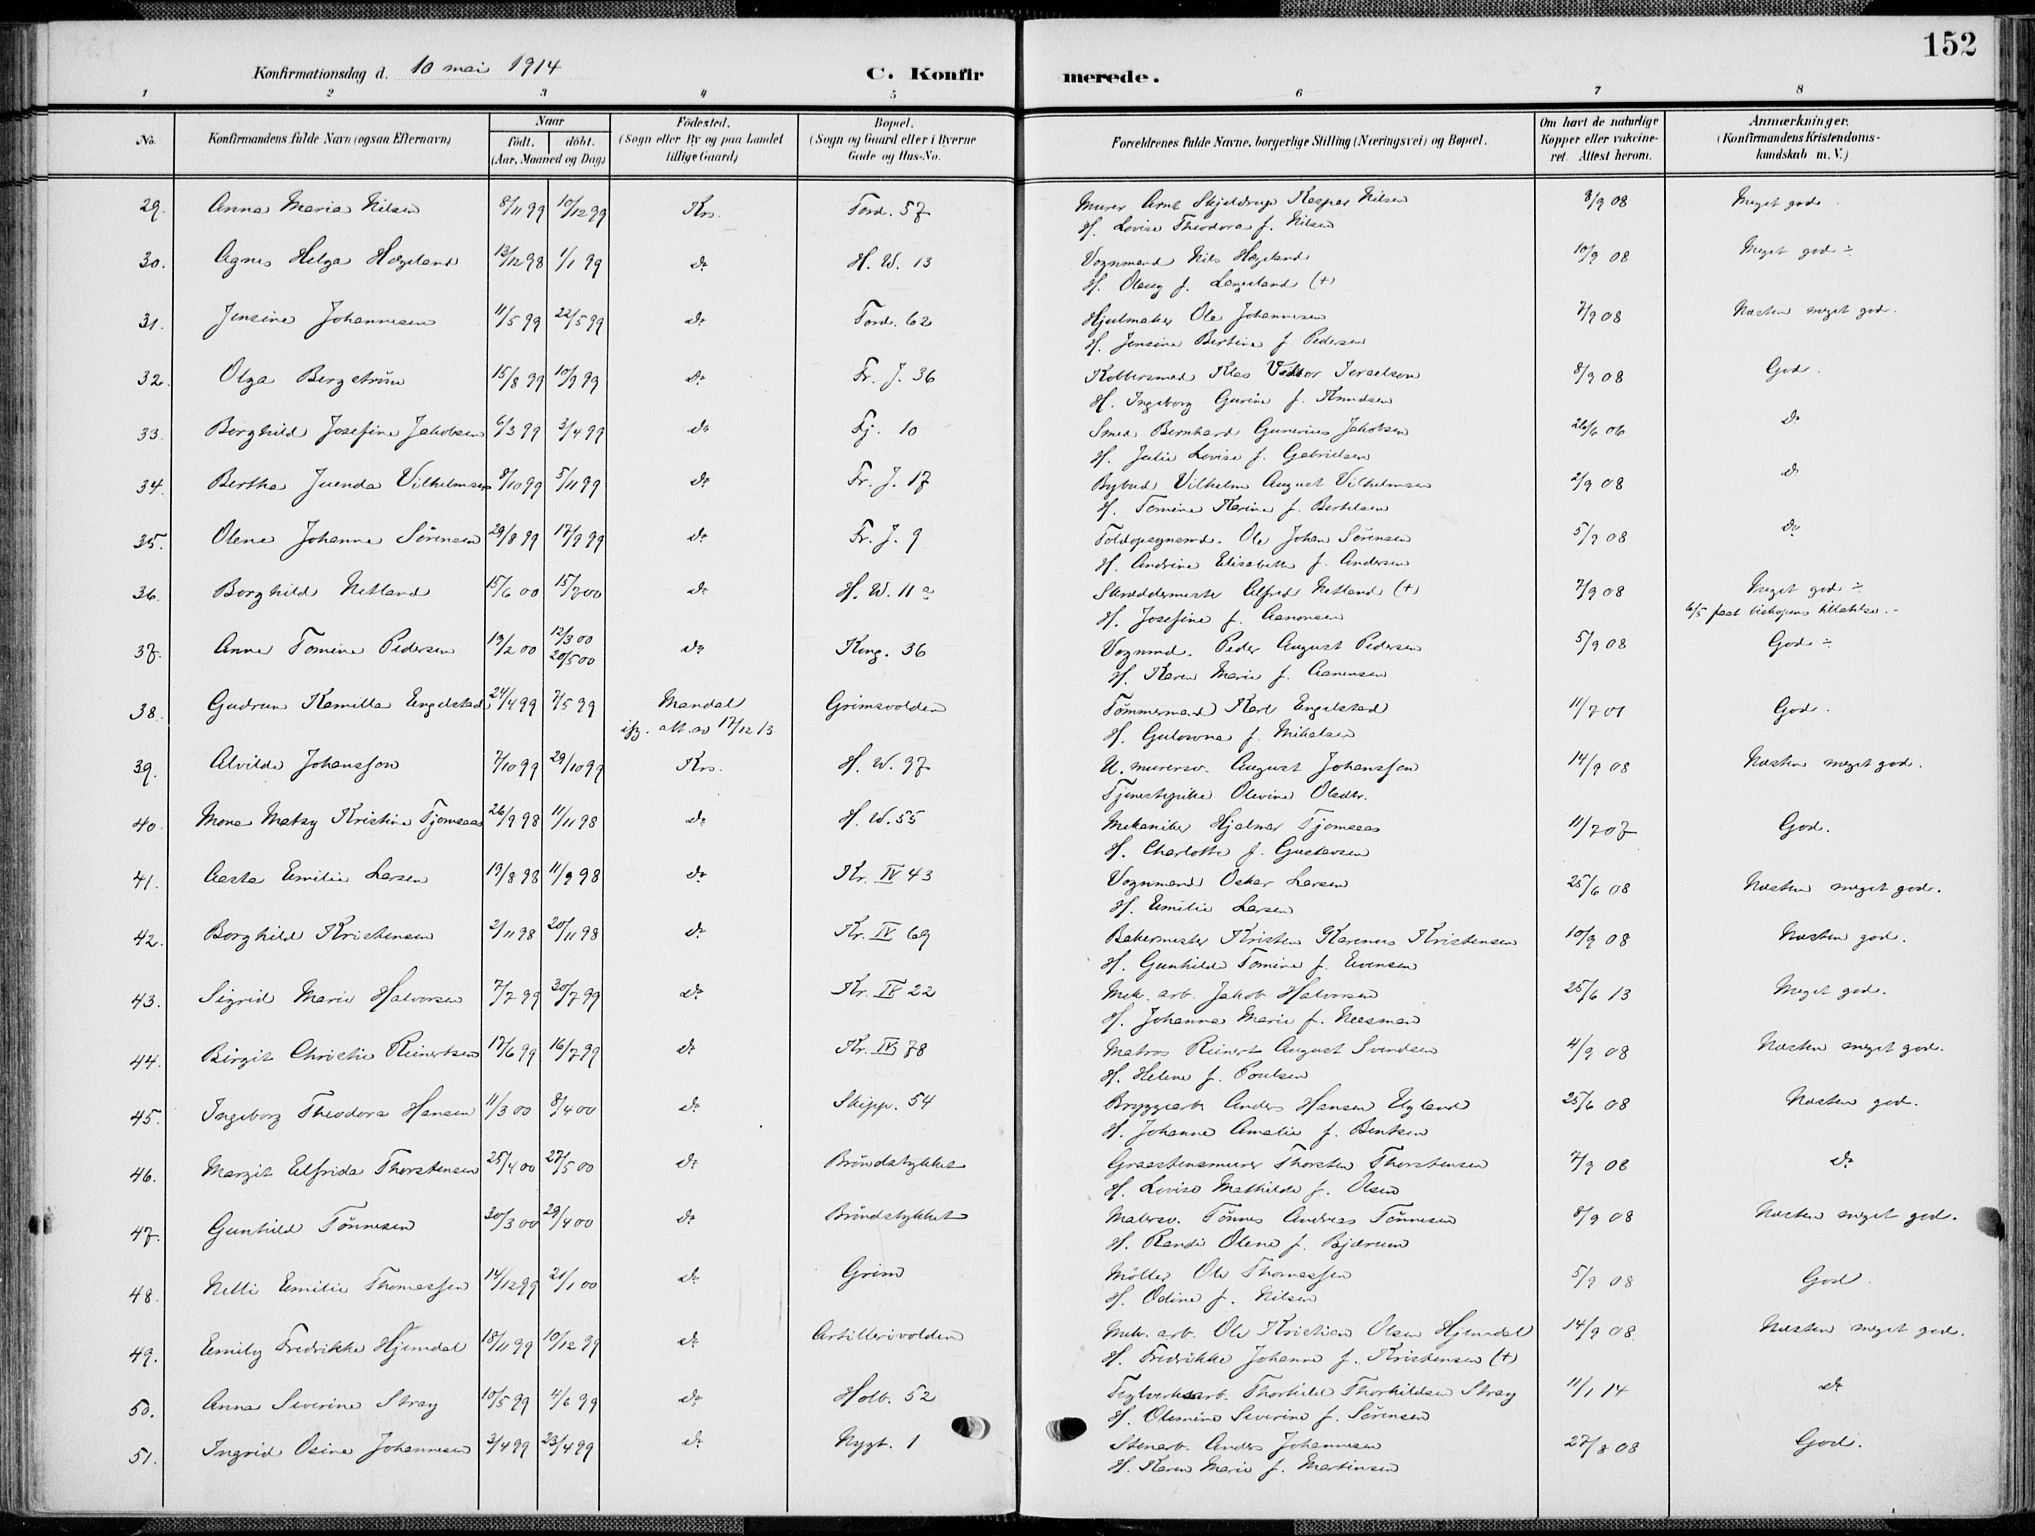 152
Konfirmationsdag d. 10 mai 1914
C. Konfirmerede.
1 2 3 4 5 6 7 8
No. | Konfirmandens fulde Navn (ogsaa Efternavn) | Naar födt. döbt. (Aar, Maaned og Dag) | Födested. (Sogn eller By og paa Landet tillige Gaard) | Bopæl. (Sogn og Gaard eller i Byerne Gade og Hus-No. | Forældrenes fulde Navne, borgerlige Stilling (Næringsvei) og Bopæl. | Om havt de naturlige Kopper eller vakcineret. Attest herom. | Anmærkninger. (Konfirmandens Kristendomskundskab m. V.)
29. Anna Maria Nilsen 8/11 99 10/12 99 Krs. Tord. 57 Murer Arnt Skjeldrup Kaspar Nilsen 8/9 08 Meget god.
H. Lovise Theodora f. Nilsen
30. Agnes Helga Hægeland 13/12 98 1/1 99 do H. W. 13 Vognmand Nils Hægeland 10/9 08 Meget god ÷
H. Olaug f. Langeland (+)
31. Jensine Johannesen 11/5 99 22/5 99 do Tord. 62 Hjulmaker Ole Johannesen 7/9 08 Næsten meget god.
H. Jensine Bertine f. Pedersen
32. Olga Bergström 15/8 99 10/9 99 do Fr. J. 36 Kobbersmed Klas Viktor Israelson 8/9 08 God.
H. Ingeborg Gurine f. Knudsen
33. Borghild Josefine Jakobsen 6/3 99 3/4 99 do Fj. 10 Smed Bernhard Gunerius Jakobsen 26/6 06 do
H. Julie Lovise f. Gabrielsen
34. Bertha Juenda Vilhelmsen 8/10 99 5/11 99 do Fr. J. 17 Bybud Vilhelm August Vilhelmsen 2/9 08 do
H. Tomine Karine f. Bertelsen
35. Olene Johanne Sörensen 29/8 99 17/9 99 do Fr. J. 9 Toldopsynsmd. Ole Johan Sörensen 5/9 08 do
H. Andrine Elisabeth f. Andersen
36. Borghild Netland 15/6 00 15/7 00 do H. W. 11 a Skræddermester Alfred Netland (+) 7/9 08 Meget god ÷
H. Josefine f. Aanonsen 6/5 faat biskopens tilladelse.
37. Anne Tomine Pedersen 19/2 00 12/3 00 do Kong. 36 Vognmd. Peder August Pedersen 5/9 08 God ÷
20/5 00 H. Karen Marie f. Aanensen
38. Gudrun Kamilla Engelstad 24/4 99 7/5 99 Mandal Grimsvolden Tömmermand Karl Engelstad 11/7 01 God.
ifg. att. av 17/12 13 H. Gulowna f. Mikalsen
39. Alvilde Johansson 7/10 99 29/10 99 Krs. H. W. 97 U. murersv. August Johansson 14/9 08 Næsten meget god.
Tjenestepike Olevine Olsdtr.
40. Mona Matsy Kristine Tjomsaas 26/9 98 11/11 98 do H. W. 55 Mekaniker Hjalmar Tjomsaas 11/7 07 God.
H. Charlotte f. Gustavsen
41. Aasta Emilie Larsen 19/8 98 11/9 98 do Kr. IV 43 Vognmand Oskar Larsen 25/6 08 Næsten meget god.
H. Emilie Larsen
42. Borghild Kristensen 2/11 98 20/11 98 do Kr. IV 69 Bakermester Kristen Karenus Kristensen 10/9 08 Næsten god.
H. Gunhilde Tomine f. Evensen
43. Sigrid Marie Halvorsen 7/7 99 30/7 99 do Kr. IV 22 Mek. arb. Jakob Halvorsen 25/6 13 Meget god.
H. Johanna Marie f. Næsman
44. Birgit Christie Reinertsen 17/6 99 16/7 99 do Kr. IV 78 Matros Reinert August Svendsen 4/9 08 Næsten meget god.
H. Helene f. Poulsen
45. Ingeborg Theodora Hansen 11/3 00 8/4 00 do Skipp. 54 Bryggearb. Anders Hansen Egland 25/6 08 Næsten god.
H. Johanne Amalie f. Bentsen
46. Margit Elfrida Thorstensen 25/4 00 27/5 00 do Bröndstykket Graastensmurer Thorsten Thorstensen 7/9 08 do
H. Lovise Mathilde f. Olsen
47. Gunhild Tönnesen 30/3 00 29/4 00 do Bröndstykket Malersv. Tönnes Andreas Tönnesen 8/9 08 Næsten meget god.
H. Randi Olene f. Bjærum
48. Nelli Emilie Thomassen 14/12 99 21/1 00 do Grim Möller Ole Thomassen 5/9 08 God
H. Odine f. Nilsen
49. Emily Fredrikke Hjemdal 18/11 99 10/12 99 do Artillerivolden Mek. arb. Ole Kristian Olsen Hjemdal 14/9 08 Næsten meget god.
H. Fredrikke Johanne f. Kristensen (+)
50. Anna Severine Stray 10/5 99 4/6 99 do Holb. 52 Teglverksarb. Thorkild Thorkildsen Stray 11/1 14 do
H. Olemine Severine f. Sörensen
51. Ingrid Osine Johannesen 3/4 99 23/4 99 do Nygt. 1 Stenarb. Anders Johannesen 27/8 08 God.
H. Karen Marie f. Martinsen